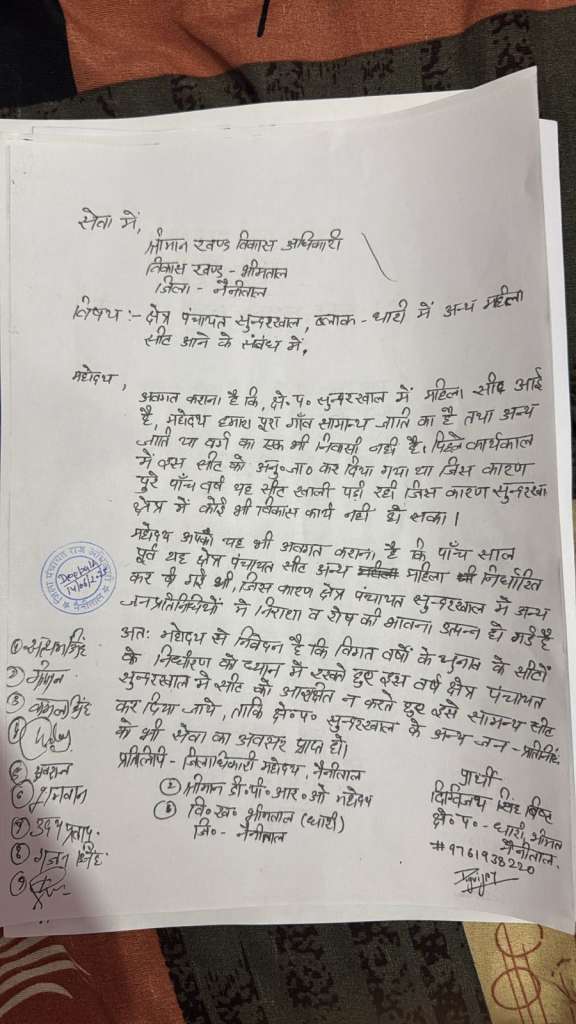 सेवा में,
श्रीमान खण्ड विकास अधिकारी
विकास खण्ड - भीमताल
जिला - नैनीताल
विषय :- क्षेत्र पंचायत सुन्दरखाल, ब्लाक - धारी में अन्य महिला
सीट आने के संबंध में,
महोदय,
अवगत कराना है कि, क्षे० प० सुन्दरखाल में महिला सीट आई
है, महोदय हमारा पूरा गाँव सामान्य जाति का है तथा अन्य
जाति या वर्ग का एक भी निवासी नहीं है। पिछले कार्यकाल
में इस सीट को अनु० जा० कर दिया गया था जिस कारण
पुरे पाँच वर्ष यह सीट खाली पड़ी रही जिस कारण सुन्दरखा
क्षेत्र में कोई भी विकास कार्य नहीं हो सका।
महोदय आपको यह भी अवगत कराना है कि पाँच साल
पूर्व यह क्षेत्र पंचायत सीट अन्य महिला निर्धारित
कर दी गई थी, जिस कारण क्षेत्र पंचायत सुन्दरखाल में अन्य
जनप्रतिनिधियों में निराशा व रोष की भावना उत्पन्न हो गई है
अतः महोदय से निवेदन है कि विगत वर्षों के चुनाव के सीटों
के निर्धारण को ध्यान में रखते हुए इस वर्ष क्षेत्र पंचायत
सुन्दरखाल में सीट को आरक्षित न करते हुए इसे सामान्य सीट
कर दिया जाये, ताकि क्षे० प० सुन्दरखाल के अन्य जन - प्रतिनिधि
को भी सेवा का अवसर प्राप्त हो।
प्रतिलिपि - जिलाधिकारी महोदय, नैनीताल
② श्रीमान डी० पी० आर० ओ महोदय
③ वि० ख० भीमताल (धारी)
जि० - नैनीताल
प्रार्थी
दिग्विजय सिंह बिष्ट
क्षे० प० - धारी, भीमताल
नैनीताल.
# 9761938220
जिला पंचायत राज अधिकारी
Deepak
नैनीताल
②
③ कमल सिंह
④
⑤
⑥ भगवान
⑦ उदय प्रताप
⑧
⑨